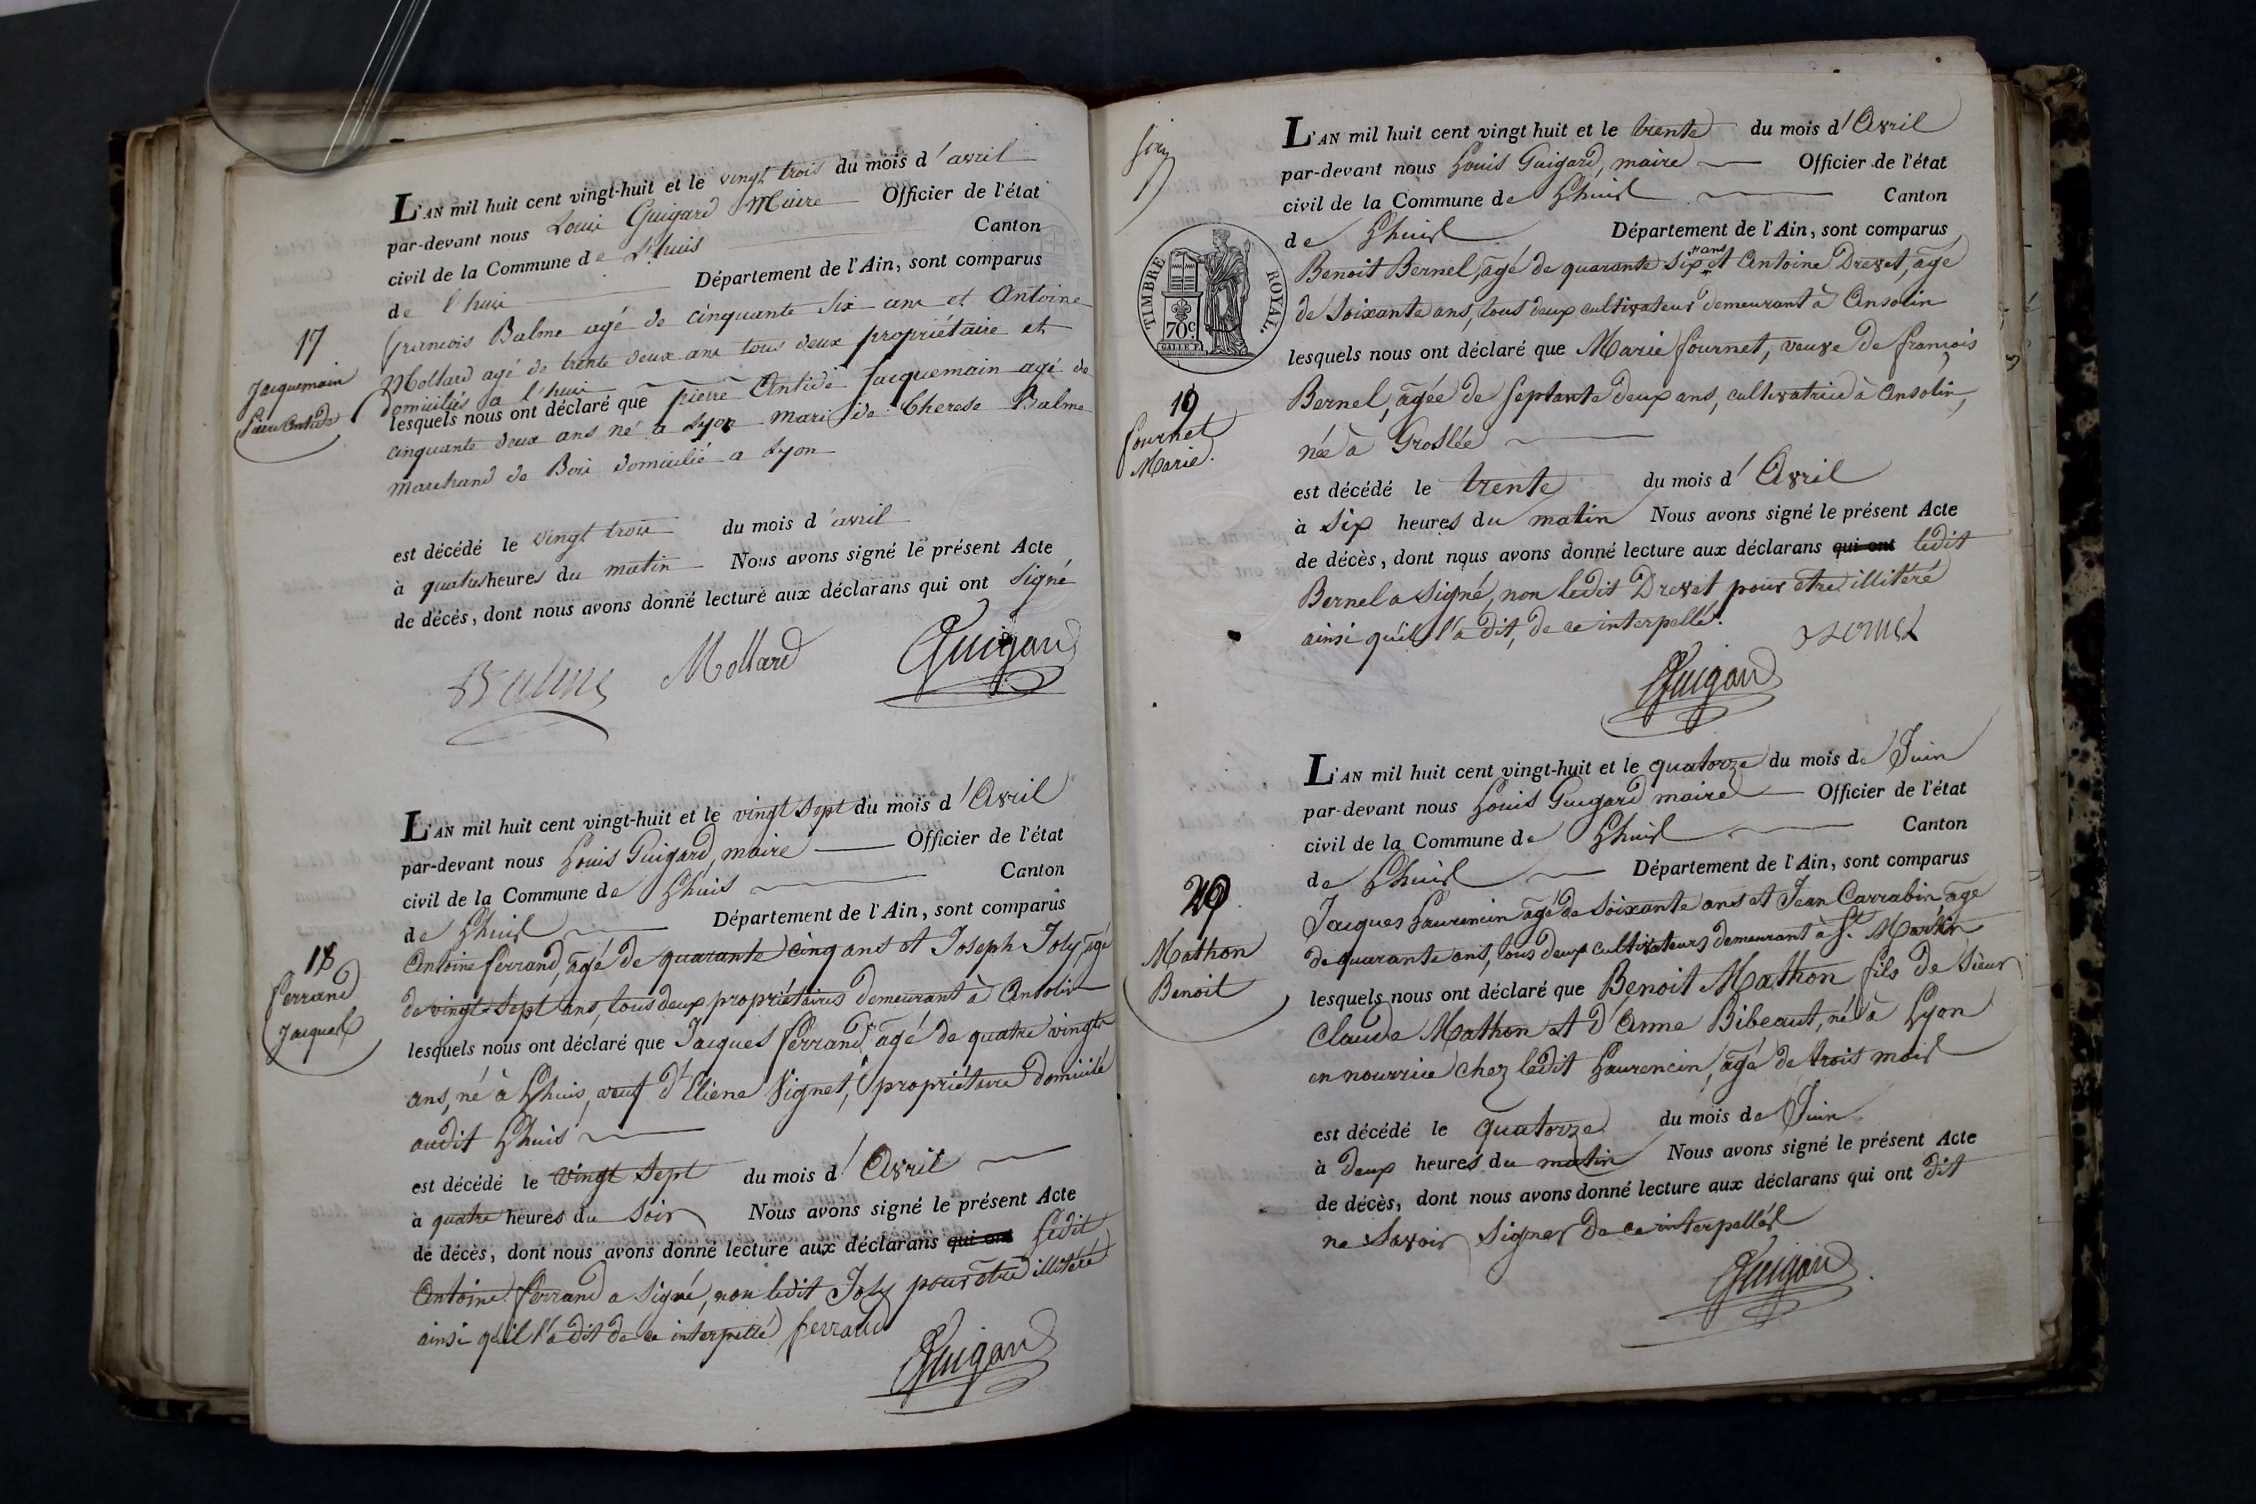 L'AN mil huit cent vingt-huit et le vingt trois du mois d'avril
par-devant nous Louis Guigard Maire Officier de l'état
civil de la Commune de L'huis Canton
de l'huis Département de l'Ain, sont comparus
françois Balme agé de cinquante six ans et Antoine
Mollard agé de trente deux ans tous deux propriétaire et
domiciliés a l'huis
lesquels nous ont déclaré que pierre Antide Jacquemain agé de
cinquante deux ans né a Lyon mari de Therese Balme
marchand de Bois domicilié a Lyon
est décédé le vingt trois du mois d'avril
à quatre heures du matin Nous avons signé le présent Acte
de décès, dont nous avons donné lecture aux déclarans qui ont signé
Balme Mollard Guigard
17
Jacquemain
Pierre Antide
L'AN mil huit cent vingt-huit et le vingt sept du mois d'Avril
par-devant nous Louis Guigard, maire Officier de l'état
civil de la Commune de Lhuis Canton
de Lhuis Département de l'Ain, sont comparus
Antoine ferrand, âgé de quarante cinq ans et Joseph Joly, âgé
de vingt-sept ans, tous deux propriétaires demeurant à Ansolin
lesquels nous ont déclaré que Jacques ferrand, âgé de quatre vingts
ans, né à Lhuis, veuf d'Etiene Vignet, propriétaire domicilié
audit Lhuis
est décédé le vingt sept du mois d'Avril
à quatre heures du soir Nous avons signé le présent Acte
de décès, dont nous avons donné lecture aux déclarans qui ont ledit
Antoine ferrand a signé, non ledit Joly pour être illitéré
ainsi qu'il l'a dit de ce interpellé ferrand
Guigard
18
ferrand
Jacques
L'AN mil huit cent vingt huit et le trente du mois d'Avril
par-devant nous Louis Guigard, maire Officier de l'état
civil de la Commune de Lhuis Canton
de Lhuis Département de l'Ain, sont comparus
Benoit Bernel, âgé de quarante six ans et Antoine Drevet, âgé
de soixante ans, tous deux cultivateurs demeurant à Ansolin
lesquels nous ont déclaré que Marie fournet, veuve de françois
Bernel, âgée de septante deux ans, cultivatrice à Ansolin,
née à Groslée
est décédé le trente du mois d'Avril
à six heures du matin Nous avons signé le présent Acte
de décès, dont nous avons donné lecture aux déclarans qui ont ledit
Bernel a signé, non ledit Drevet pour être illitéré
ainsi qu'il l'a dit, de ce interpellé.
Guigard
TIMBRE ROYAL.
70c
GALLE F.
19
fournet
Marie.
L'AN mil huit cent vingt-huit et le quatorze du mois de Juin
par-devant nous Louis Guigard maire Officier de l'état
civil de la Commune de Lhuis Canton
de Lhuis Département de l'Ain, sont comparus
Jacques Laurencin âgé de soixante ans et Jean Carrabin âgé
de quarante ans, tous deux cultivateurs demeurant à St. Martin
lesquels nous ont déclaré que Benoit Mathon, fils de sieur
Claude Mathon et d'Anne Bibeaut, né à Lyon
en nourrice chez ledit Laurencin, âgé de trois mois
est décédé le quatorze du mois de Juin
à deux heures du matin Nous avons signé le présent Acte
de décès, dont nous avons donné lecture aux déclarans qui ont dit
ne savoir signer de ce interpellés
Guigard
20
Mathon
Benoit